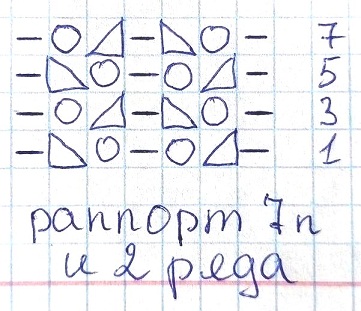 7
5
3
1
раппорт 7п
и 2 ряда